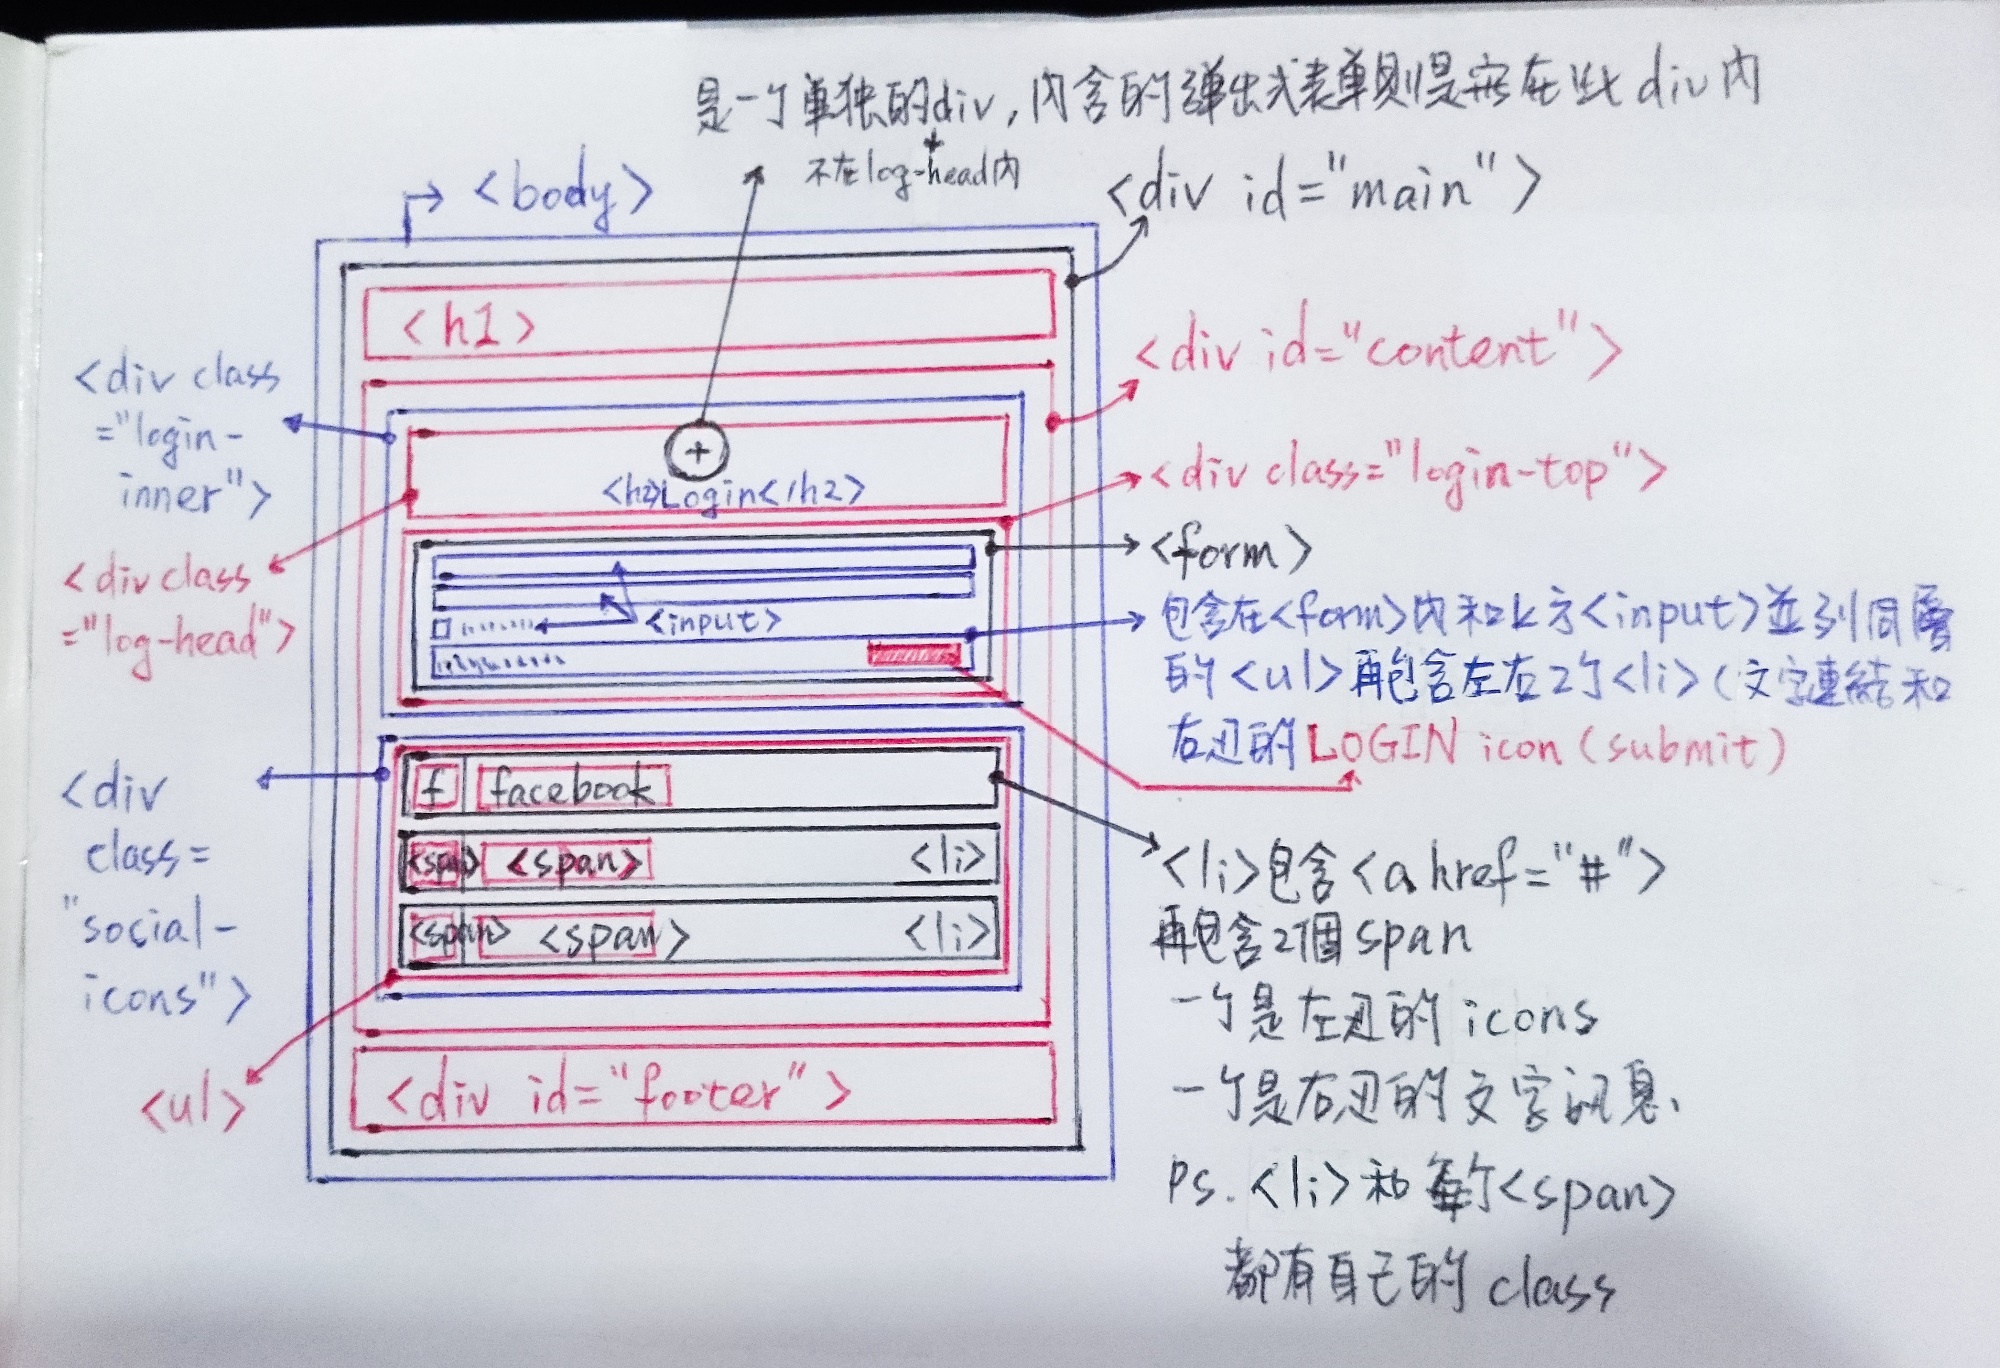 是一个单独的div,内含的弹出式表单则是在此div内
不在log-head内
<body>
<div id="main">
<h1>
<div id="content">
<div class
="login-
inner">
+
<h2>Login</h2>
<div class="login-top">
<div class
="log-head">
<form>
<input>
包含在<form>内和上方<input>並列同層
的<ul>再包含左右2个<li>(文字連結和
右边的LOGIN icon(submit)
<div
class=
"social-
icons">
f facebook
<span> <span> <li>
<span> <span> <li>
<li>包含<a href="#">
再包含2個span
一个是左边的icons
一个是右边的文字訊息、
Ps. <li>和每个<span>
都有自己的class
<ul>
<div id="footer">